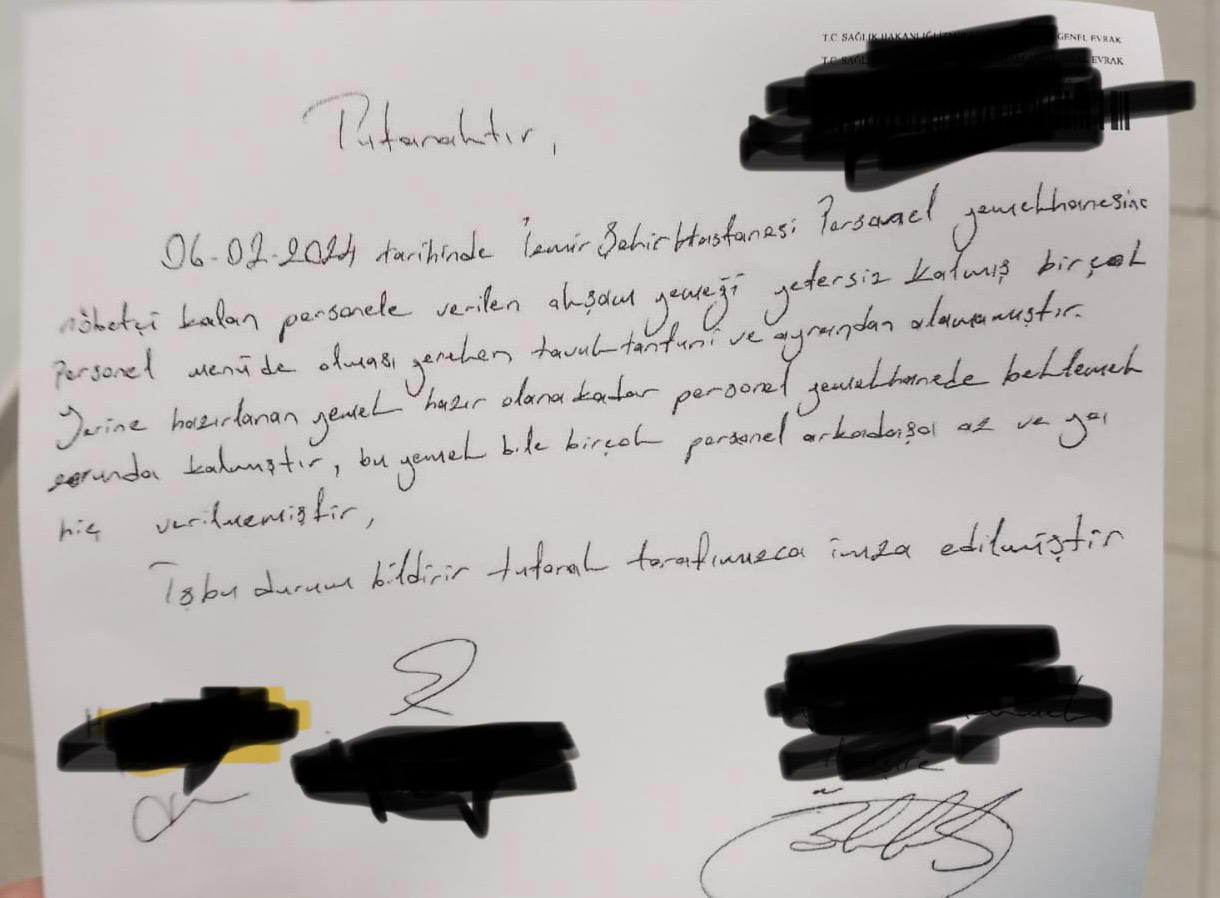 T.C. SAĞLIK BAKANLIĞI GENEL EVRAK
T.C. SAĞLI EVRAK
Tutanaktır,
06-02-2024 tarihinde İzmir Şehir Hastanesi Personel yemekhanesine
nöbetçi kalan personele verilen akşam yemeği yetersiz kalmış birçok
Personel menüde olması gereken tavuk tantuni ve ayrandan alamamıştır.
Yerine hazırlanan yemek hazır olana kadar personel yemekhanede beklemek
zorunda kalmıştır, bu yemek bile birçok personel arkadaşa az ve ya
hiç verilmemiştir,
İşbu durum bildirir tutanak tarafımızca imza edilmiştir